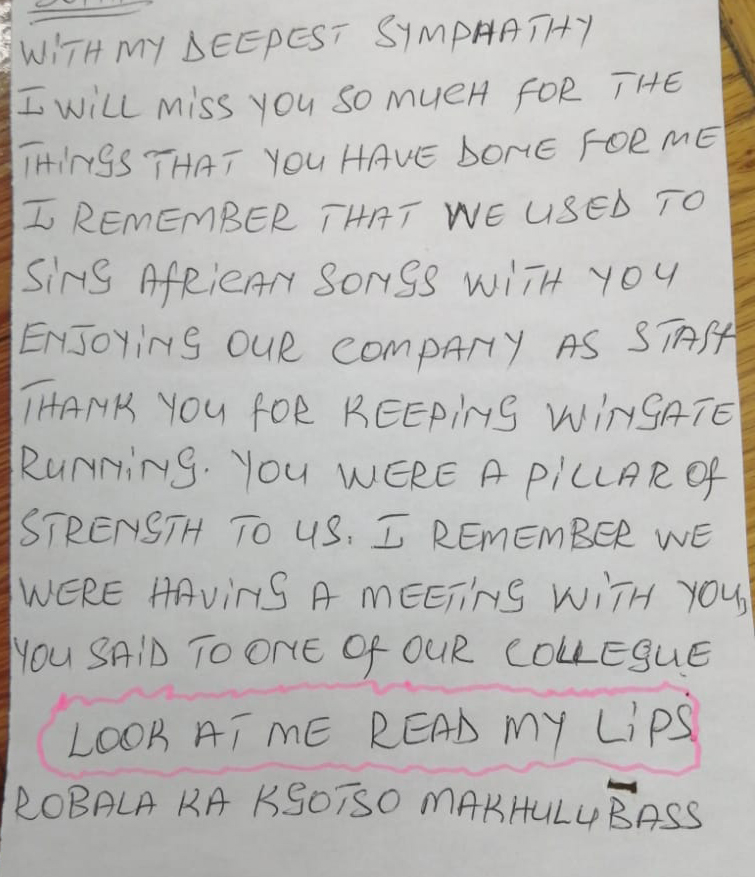 WITH MY DEEPEST SYMPHATHY
I WILL MISS YOU SO MUCH FOR THE
THINGS THAT YOU HAVE DONE FOR ME
I REMEMBER THAT WE USED TO
SING AFRICAN SONGS WITH YOU
ENJOYING OUR COMPANY AS STAFF
THANK YOU FOR KEEPING WINGATE
RUNNING. YOU WERE A PILLAR OF
STRENGTH TO US. I REMEMBER WE
WERE HAVING A MEETING WITH YOU,
YOU SAID TO ONE OF OUR COLLEGUE
LOOK AT ME READ MY LIPS
ROBALA KA KGOTSO MAKHULU BASS